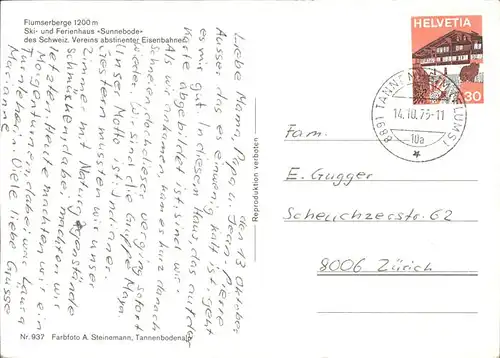 Flumserberge 1200 m
Ski- und Ferienhaus «Sunnebode»
des Schweiz. Vereins abstinenter Eisenbahner
den 13 Oktober
Liebe Mama, Papa u. Jean-Pierre
Ausser das es ein wenig kalt ist, geht
es mir gut. In diesem Haus, das auf der
Karte abgebildet ist, sind wir.
Als wir ankamen, kam er kurz danach
Schneien, doch dieser verging sofort
wieder. Wir sind die Gruppe Maya.
Unser Motto ist: Indianer.
Gestern mussten wir unser
Zimmer mit Natur
schmücken, dabei machten wir
letzten. Heute machten wir ein
Morgenturnen, dabei war Laura
Turnlehrerin. Viele liebe Grüsse
Marianne
Nr. 937 Farbfoto A. Steinemann, Tannenbodenalp
Reproduktion verboten
HELVETIA
30
8891 TANNENHEIM (FLUMS)
14.10.75-11
10a
Fam.
E. Gugger
Scheuchzerstr. 62
8006 Zürich